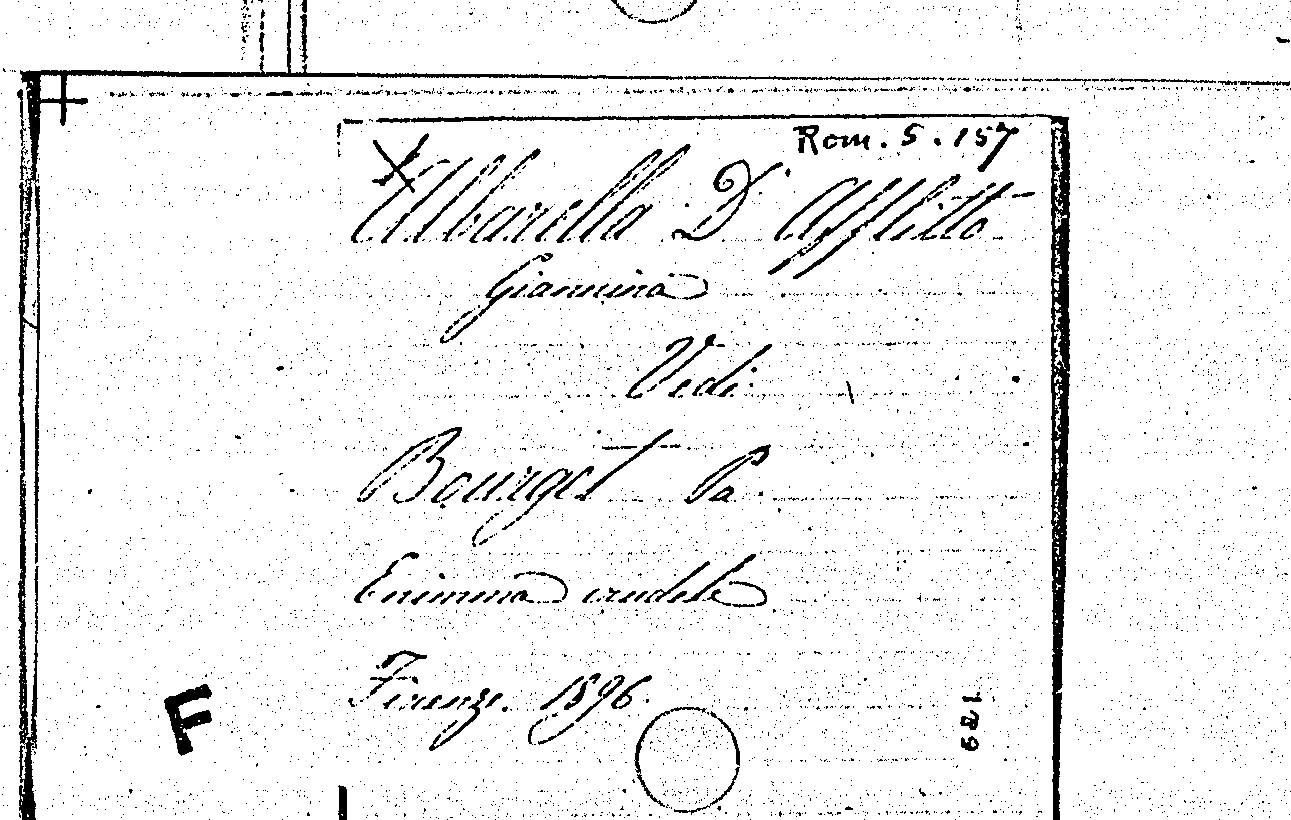 Rom. 5. 157
Albarella D' Afflitto
Giannina
Vedi
Bourget Pa.
Enimma crudele
Firenze. 1896.
F